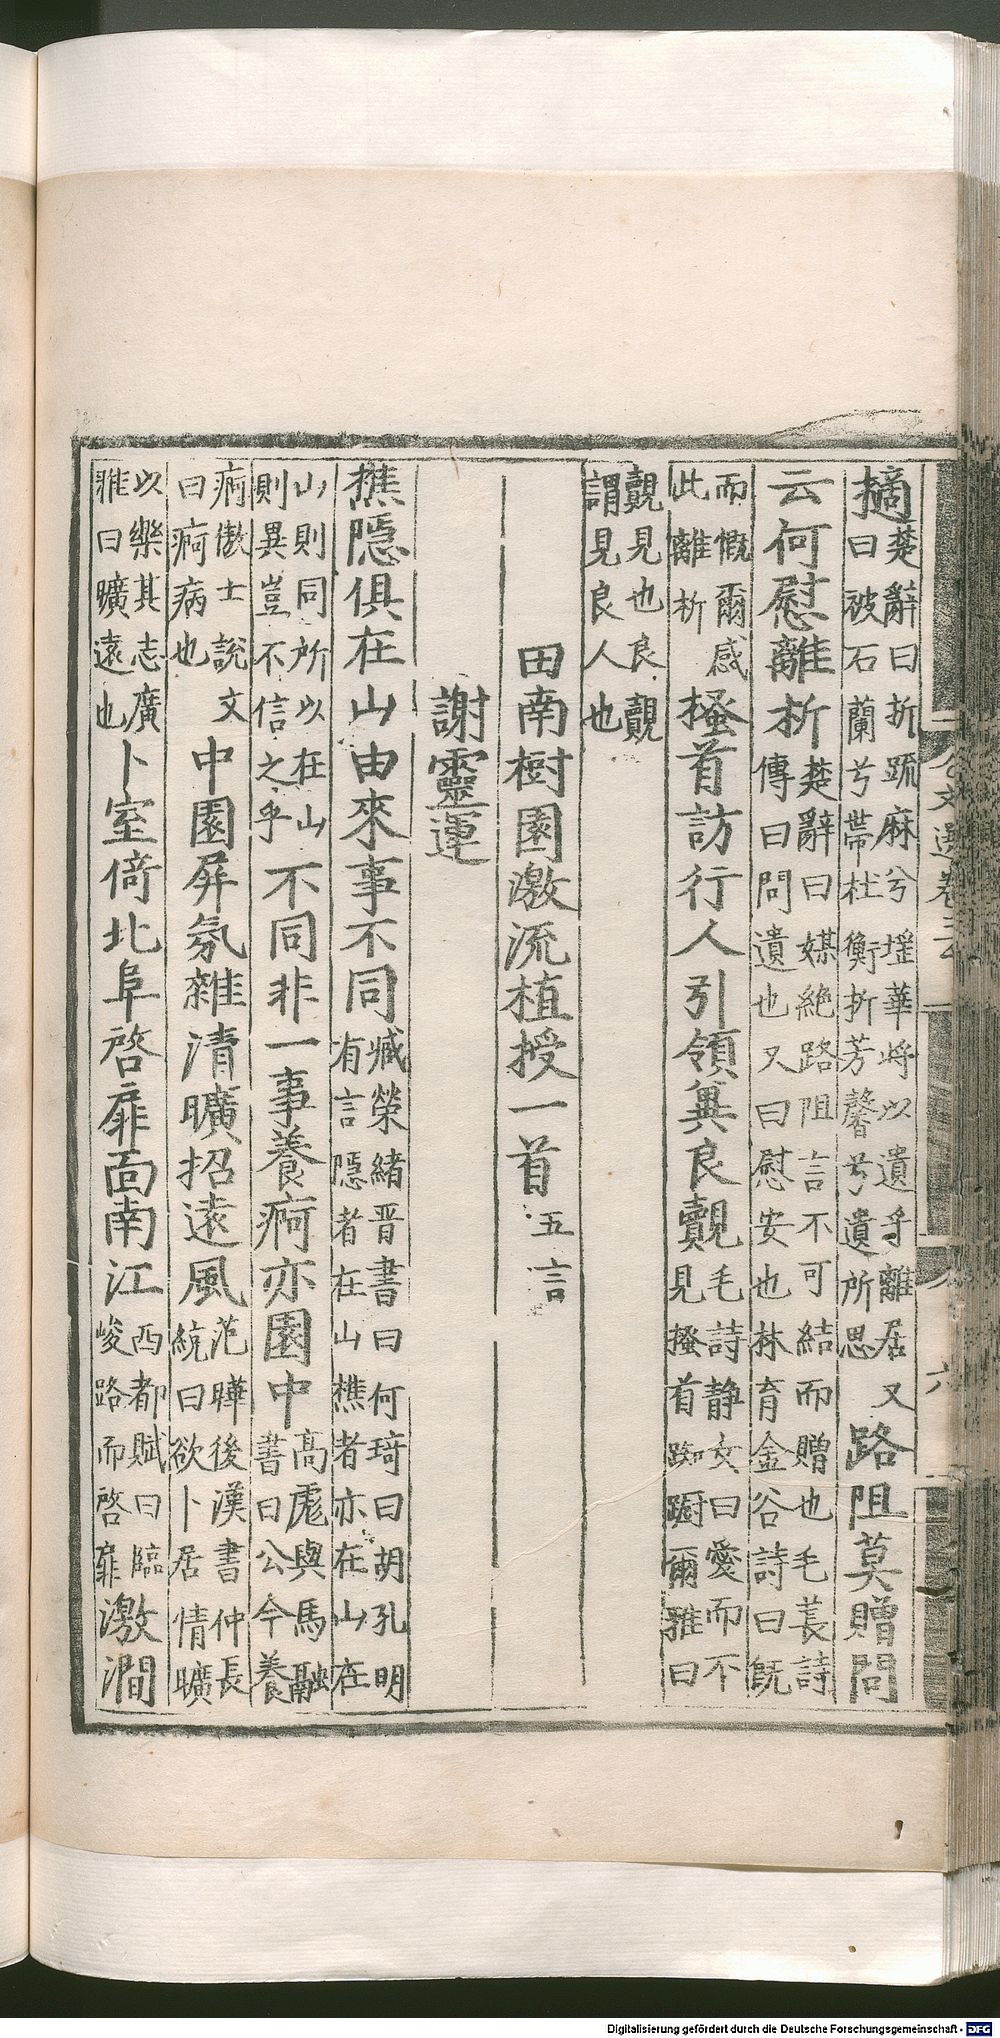 摘楚辭曰折疏麻兮瑶華將以遺乎離居又曰被石蘭兮帶杜衡折芳馨兮遺所思路阻莫贈問
云何慰離析楚辭曰媒絶路阻言不可結而贈也毛萇詩傳曰問遺也又曰慰安也林育金谷詩曰旣
而慨爾感此離析搔首訪行人引領兾良覿毛詩靜女曰愛而不見搔首踟躕爾雅曰
覿見也良覿謂見良人也
田南樹園激流植授一首五言
謝靈運
樵隱俱在山由來事不同臧榮緒晉書曰何琦曰胡孔明有言隱者在山樵者亦在山在
山則同所以在山則異豈不信之乎不同非一事養痾亦園中高彪與馬融書曰公今養
痾傲士說文曰痾病也中園屏氛雜清曠招遠風范曄後漢書仲長統曰欲卜居情曠
以樂其志廣雅曰曠遠也卜室倚北阜啓扉面南江西都賦曰臨峻路而啓扉激澗
Digitalisierung gefördert durch die Deutsche Forschungsgemeinschaft - DFG